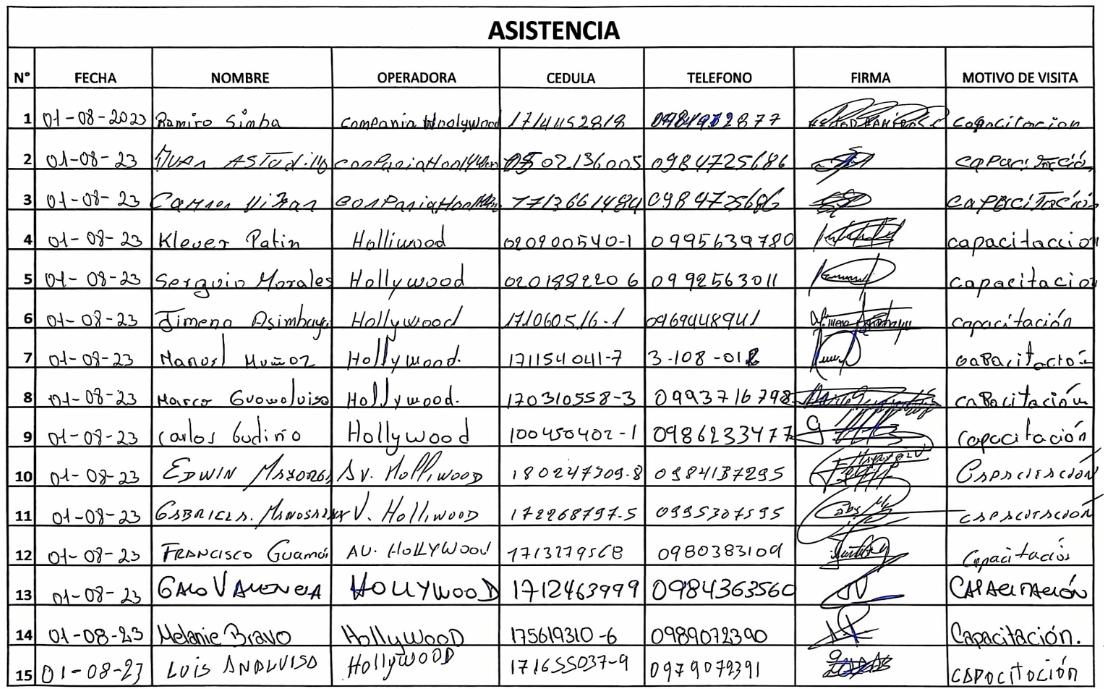 ASISTENCIA
N° FECHA NOMBRE OPERADORA CEDULA TELEFONO FIRMA MOTIVO DE VISITA
1 01-08-2023 Ramiro Simba compania Hoolywood 1714152818 0984972877 capacitacion
2 01-08-23 0502136005 0984725686 capacitació
3 01-08-23 Carmen 1713661484 0984725686 capacitación
4 01-08-23 Klever Patin Holliwood 020200540-1 0995639780 capacitacion
5 01-08-23 Serguio Morales Hollywood 020188220 6 0992563011 capacitacion
6 01-08-23 Jimena Asimbaya Hollywood 171060516-1 0969448941 capacitación
7 01-08-23 Manuel Muñoz Hollywood. 171154041-7 3-108-018 caBacitación
8 01-08-23 Marco Guanoluisa Hollywood. 170310558-3 0993716798 caBacitación
9 01-08-23 Carlos Gudiño Hollywood 100450402-1 0986233477 capacitación
10 01-08-23 EDWIN AV. HollIWOOD 180247309-8 0984137295 CAPACITACIÓN
11 01-08-23 GABRIELA. AV. HollIWOOD 172268797-5 0995307595 CAPACITACIÓN
12 01-08-23 FRANCISCO Guamán AV. HOLLYWOOD 1713279568 0980383109 Capacitación
13 01-08-23 GALO VALENCIA HOLLYWOOD 1712463999 0984363560 CAPACITACIÓN
14 01-08-23 Melanie Bravo Hollywood 175619310-6 0989072390 Capacitación.
15 01-08-23 LUIS ANDLUISA HollyWOOD 171655037-9 0979072391 CAPACITACIÓN